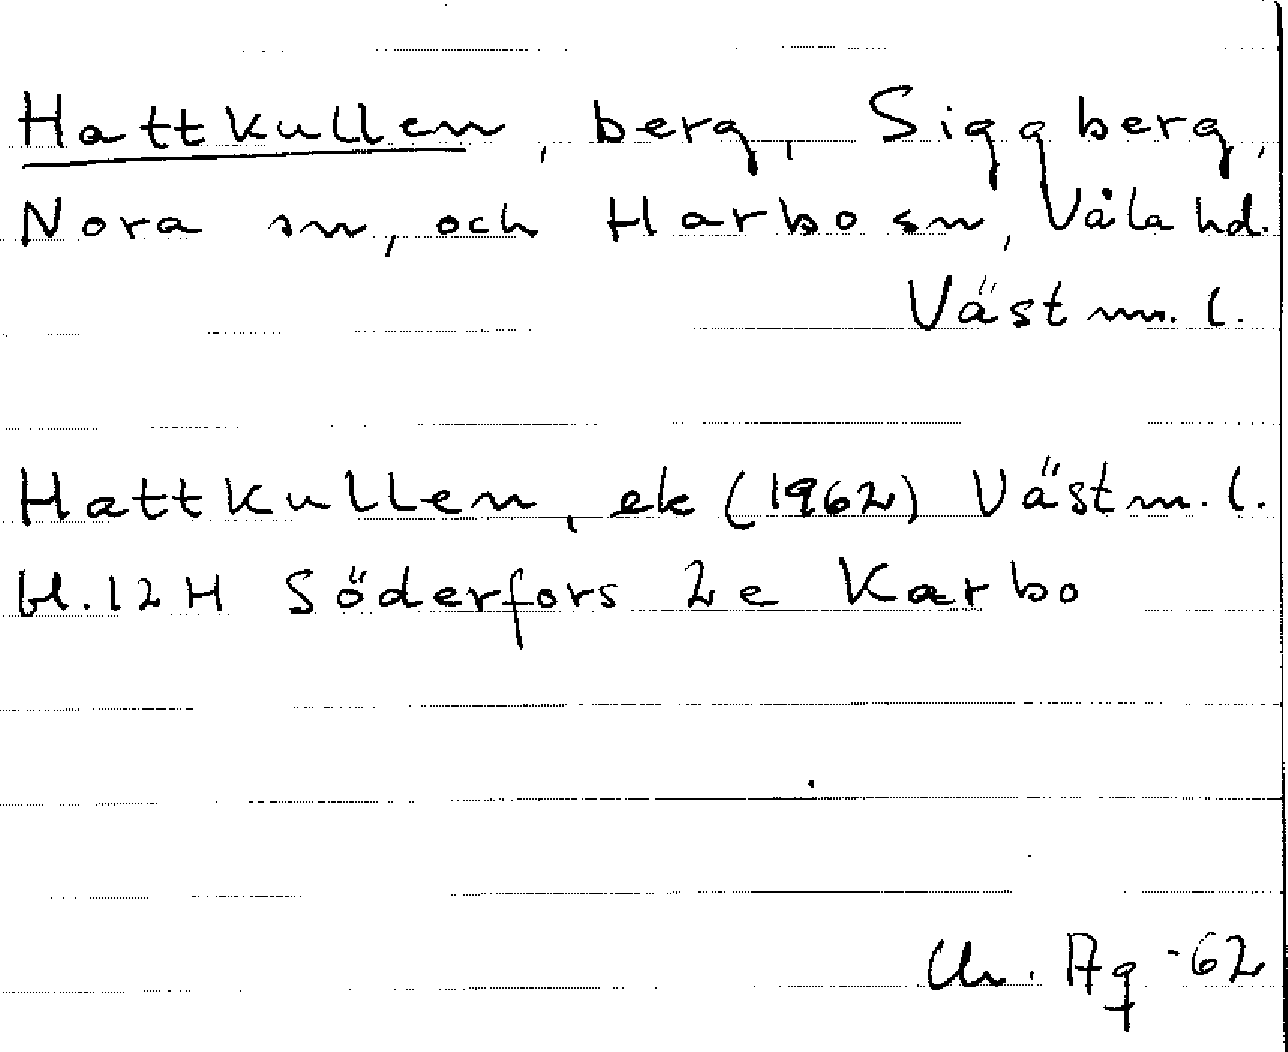 Hattkullen, berg, Siggberg,
Nora sn, och Harbo sn, Våla hd.
Västm. l.
Hattkullen, ek (1962) Västm. l.
bl. 12 H Söderfors 2e Karbo
Chr. Ag -62